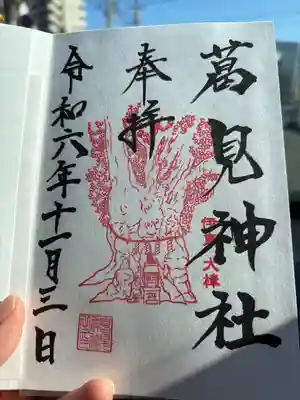 葛見神社
奉拝
令和六年十一月三日